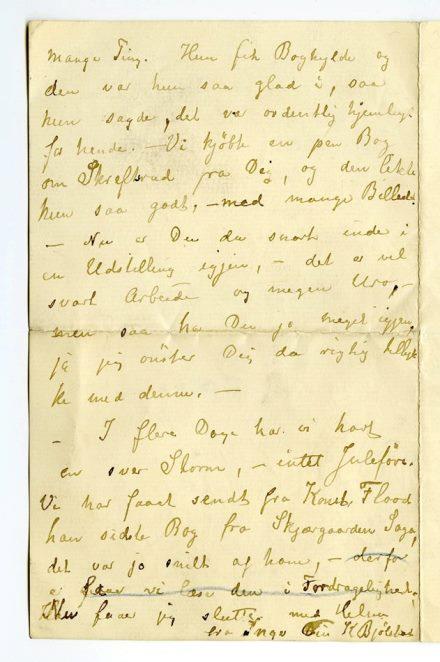 mange Ting. Hun fik Boghylde og
den var hun saa glad i, saa
hun sagde, det var ordentlig hjemlegt
for hende. — Vi kjøbte en pen Bog
om Skrefsrud fra Dig, og den likte
hun saa godt, — med mange Billeder.
— Nu er Du da snart inde i
en Udstilling igjen, — det er vel
svart Arbeide og megen Uro, —
men saa har Du jo meget igjen,
ja jeg ønsker Dig da rigtig til lyk
ke med denne. —
— I flere Dage har vi havt
en svær Storm, — intet Juleføre.
Vi har faaet sendt fra Konst. Flood
han sidste Bog fra Skjærgaarden Saga,
det var jo snilt af ham, — derfor
faar vi læse den i Fordragelighed.
Nu faar jeg slutte med Helsen
fra Inga Din K Bjølstad